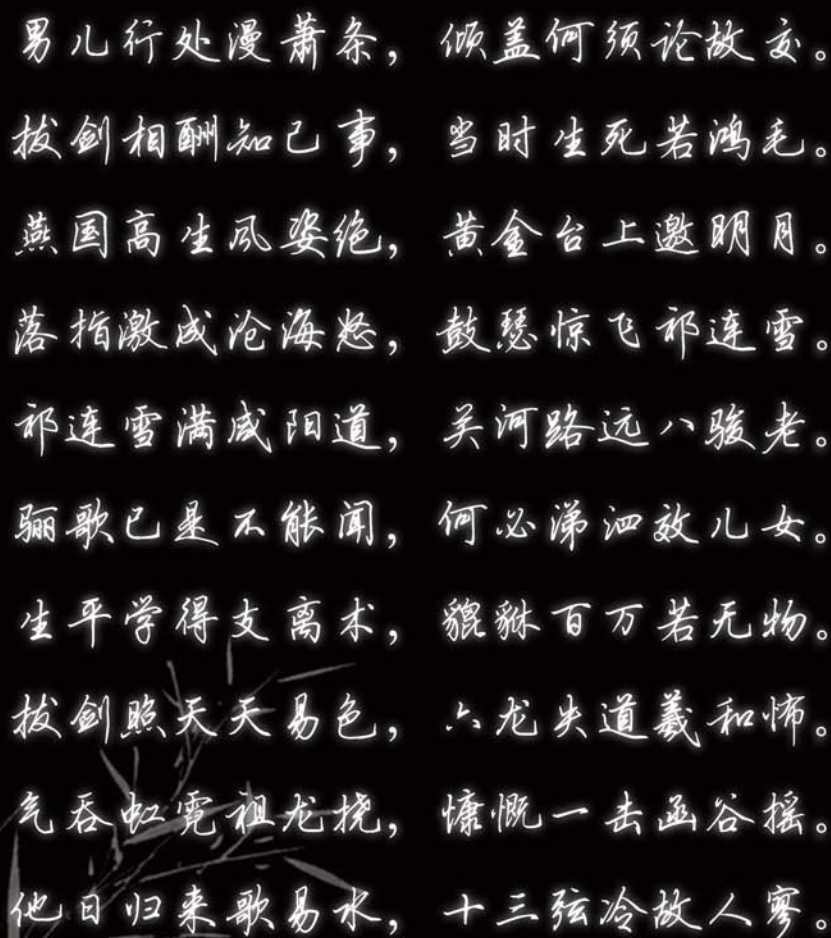 男儿行处漫萧条，倾盖何须论故交。
拔剑相酬知己事，当时生死若鸿毛。
燕国高生风姿绝，黄金台上邀明月。
落指激成沧海怒，鼓瑟惊飞祁连雪。
祁连雪满咸阳道，关河路远八骏老。
骊歌已是不能闻，何必涕泗效儿女。
生平学得支离术，貔貅百万若无物。
拔剑照天天易色，六龙失道羲和怖。
气吞虹霓祖龙挠，慷慨一击函谷摇。
他日归来歌易水，十三弦冷故人寥。